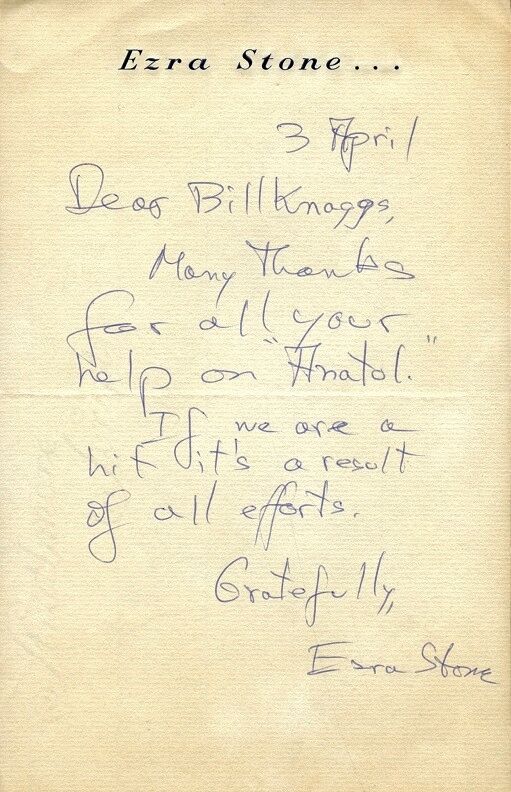 Ezra Stone...
3 April
Dear Bill Knaggs,
Many Thanks
for all your
help on "Anatol."
If we are a
hit it's a result
of all efforts.
Gratefully,
Ezra Stone